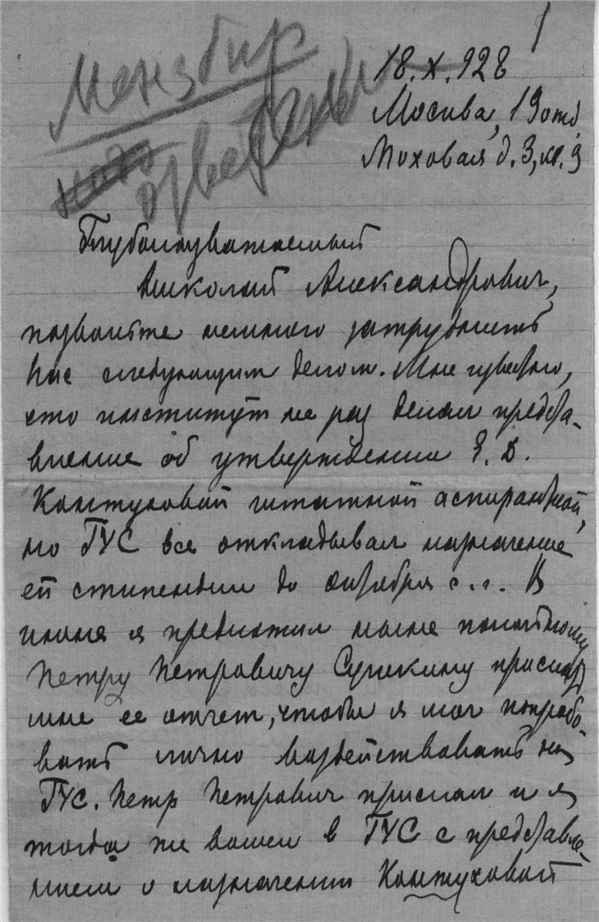 1
Мензбир
18.X.928
Москва, 19 отд
Моховая д. 3, кв. 9
Глубокоуважаемый
Николай Александрович,
позвольте немного затруднить
Вас следующим делом. Мне известно,
что институт не раз делал предста-
вление об утверждении Е. Д.
Контуховой штатной аспиранткой,
но ГУС все откладывал назначение
ей стипендии до октября с. г. В
июне я предложил ныне покойному
Петру Петровичу Сушкину прислать
мне ее отчет, чтобы я мог попробо-
вать лично воздействовать на
ГУС. Петр Петрович прислал и я
тогда же вошел в ГУС с представле-
нием о назначении Контуховой